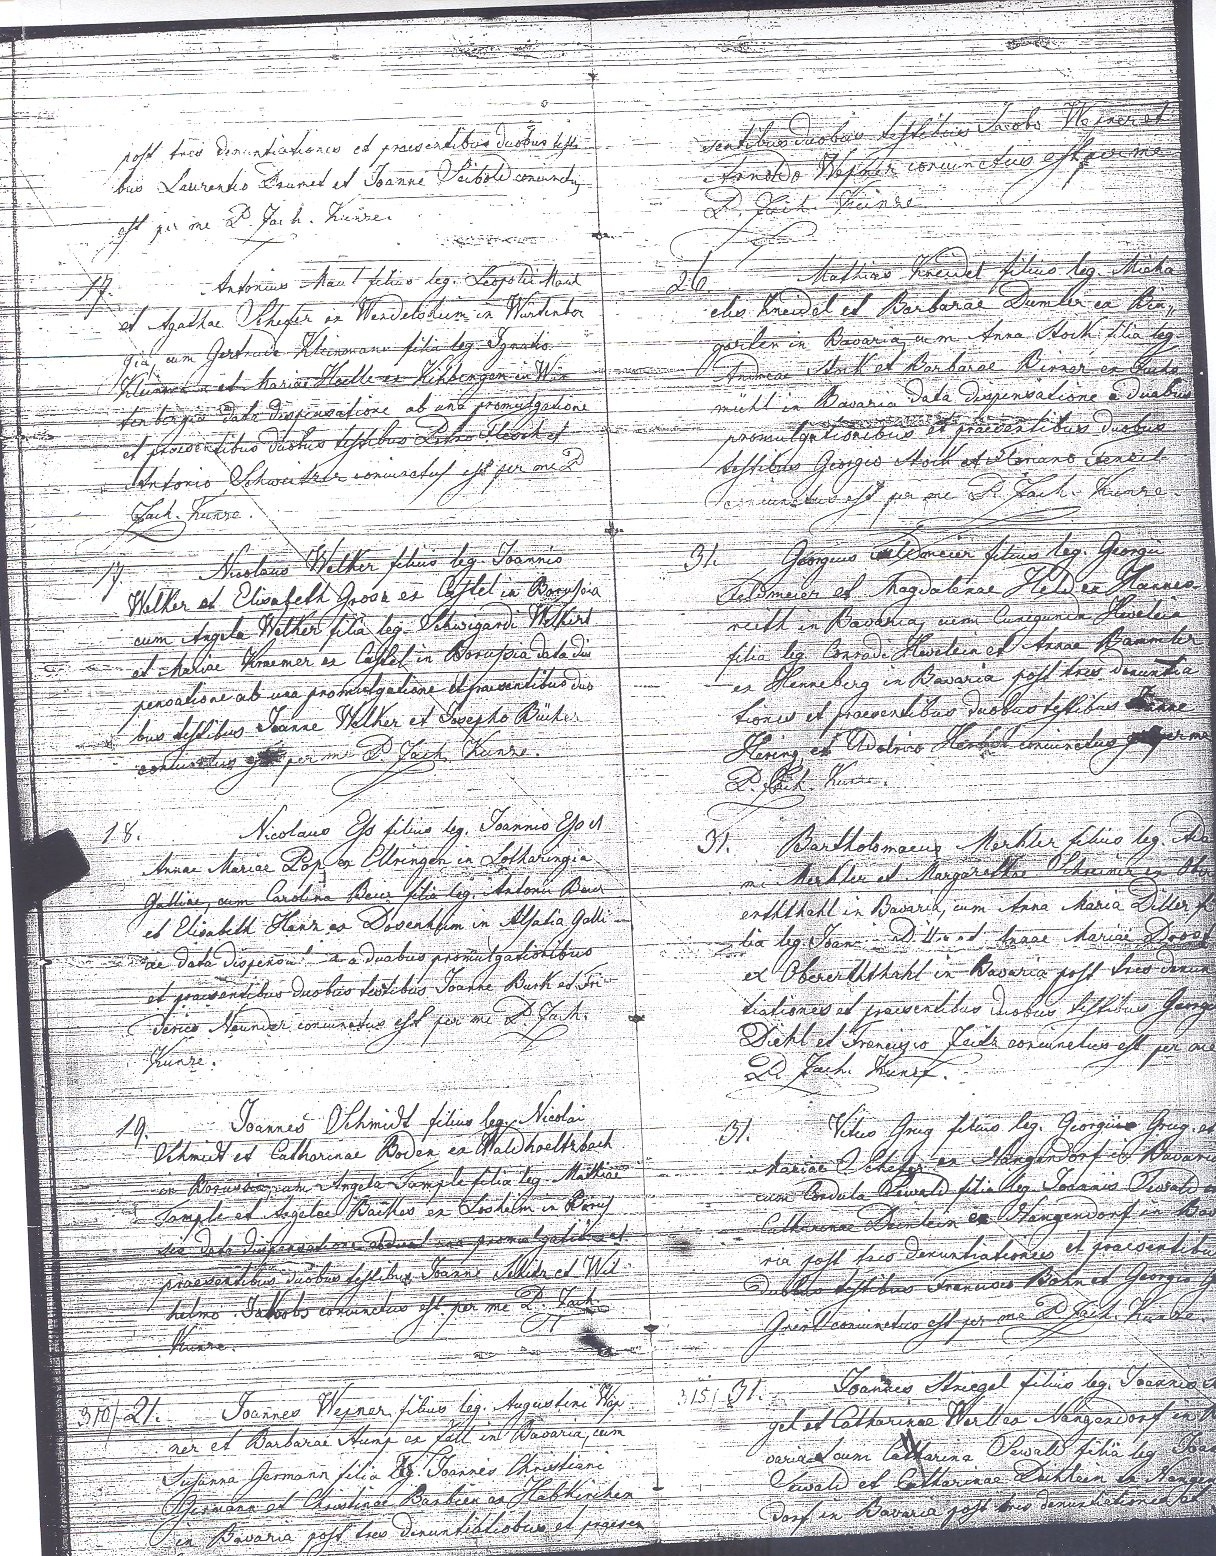 post tres denuntiationes et praesentibus duobus testi
bus Laurentio Prumet et Joanne Seibold coniunctus
est per me P. Zach. Kunze.
17. Antonius Maul filius leg. Leopoldi Maul
et Agathae Schefer ex Wendelsheim in Würtember
gia, cum Gertrude Kleinmann filia leg. Ignatio
Kleinmann et Mariae Haelle ex Kihbingen in Wür
tenbergia data dispensatione ab una promulgatione
et praesentibus duobus testibus Petro et
Antonio Schweitzer coniunctus est per me P.
Zach. Kunze.
17. Nicolaus Welker filius leg. Joannis
Welker et Elisabeth Gross ex Castel in Borussia
cum Angela Welker filia leg. Schwigardi Welkert
et Mariae Kraemer ex Castel in Borussia data dis
pensatione ab una promulgatione et praesentibus duo
bus testibus Joanne Welker et Josepho Bücher
coniunctus est per me P. Zach. Kunze.
18. Nicolaus Ess filius leg. Joannis Ess et
Annae Mariae Pop ex Ellringen in Lotharingia
Galliae, cum Carolina Beur filia leg. Antonii Beur
et Elisabeth Hanz ex Dosenheim in Alsatia Galli
ae data dispensat. a duabus promulgationibus
et praesentibus duobus testibus Joanne Burk et Fri
derico Neunder coniunctus est per me P. Zach.
Kunze.
19. Joannes Schmidt filius leg. Nicolai
Schmidt et Catharinae Boden ex Waldhoelterbach
in Borussia cum Angela Tample filia leg. Mathiae
Tample et Angelae Bäthes ex Losheim in Borus
sia data dispensatione ab una promulgatione et
praesentibus duobus testibus Joanne Schitz et Wil
helmo Jakoobs coniunctus est per me P. Zach.
Kunze.
310/ 21. Joannes Wepner filius leg. Augustini Wep
ner et Barbarae Aump ex Fall in Bavaria, cum
Susanna Germann filia leg. Joannis Christiani
Germann et Christinae Bastien ex Habkirchen
in Bavaria post tres denuntiationes et praesen
sentibus duobus testibus Jacobo Wepner et
Arnoldo Wepner coniunctus est per me
P. Zach. Kunze.
26. Mathias Kneidel filius leg. Micha
elis Kneidel et Barbarae Dumler ex Bin
garten in Bavaria, cum Anna Stock filia leg.
Andreae Stock et Barbarae Birner ex Fuchs
mühl in Bavaria data dispensatione a duabus
promulgationibus et praesentibus duobus
testibus Georgio Stock et Floriano
coniunctus est per me P. Zach. Kunze.
31. Georgius Feldmeier filius leg. Georgii
Feldmeier et Magdalenae Held ex Hannes
reith in Bavaria, cum Cunegunda Hevelein
filia leg. Conradi Hevelein et Annae Bammler
ex Henneberg in Bavaria post tres denuntia
tiones et praesentibus duobus testibus Joanne
Hering et Udalrico Herbst coniunctus est per me
P. Zach. Kunze.
31. Bartholomaeus Merkler filius leg. Ada
mi Merkler et Margarethae Schreiner ex Ober
erththahl in Bavaria, cum Anna Maria Diller fi
lia leg. Joannis Diller et Annae Mariae
ex Obererththahl in Bavaria post tres denun
tiationes et praesentibus duobus testibus Georgio
Diehl et Francisco Zeitz coniunctus est per me
P. Zach. Kunze.
31. Vitus Grug filius leg. Georgii Grug et
Mariae Schefer ex Nangendorf in Bavaria
cum Cordula Sewald filia leg. Joannis Sewald et
Catharinae Deichlein ex Nangendorf in Bava
ria post tres denuntiationes et praesentibus
duobus testibus Francisco Bahn et Georgio
coniunctus est per me P. Zach. Kunze.
315/ 31. Joannes Striegel filius leg. Joannis
gel et Catharinae Wertl ex Nangendorf in
varia cum Catharina Sewald filia leg. Joan
Sewald et Catharinae Deichlein ex Nangen
dorf in Bavaria post tres denuntiationes et